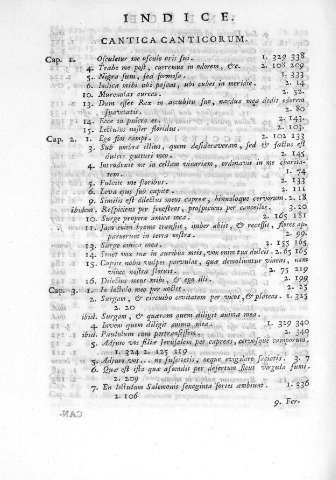 INDICE.
CANTICA CANTICORUM.
Cap. 1. Osculetur me osculo oris sui. 1. 329 338
4. Trahe me post, curremus in odorem, &c. 2. 108 209
5. Nigra sum, sed formosa. 1. 333
6. Indica mihi ubi pascas, ubi cubes in meridie. 2. 14
10. Murenulas aureas. 2. 52
12. Dum esset Rex in accubitu suo, nardus mea dedit odorem
suavitatis. 2. 80
14. Ecce tu pulcra es. 2. 143.
15. Lectulus noster floridus. 2. 103.
Cap. 2. 1. Ego flos campi. 2. 102 133
3. Sub umbra illius, quem desideraveram, sedi & fructus ejus
dulcis gutturi meo. 2. 145
4. Introduxit me in cellam vinariam, ordinavit in me charitatem.
1. 74
5. Fulcite me floribus. 2. 133
6. Leva ejus sub capite. 2. 111
9. Similis est dilectus meus capreæ, hinnuloque cervorum. 2. 18
ibidem. Respiciens per fenestras, prospiciens per cancellos. 3. 20
10. Surge propera amica mea. 2. 165 181
11. Jam enim hyems transiit, imber abiit, & recessit, flores apparuerunt
in terra nostra.
13. Surge amica mea. 2. 155 165
14. Sonet vox tua in auribus meis, vox enim tua dulcis. 2. 65 165
15. Capite nobis vulpes parvulas, quæ demoliuntur vineas, nam
vinea nostra floruit. 2. 75 219
16. Dilectus meus mihi, & ego illi. 2. 199
Cap. 3. 1. In lectulo meo per noctes. 2. 25
2. Surgam, & circuibo civitatem per vicos, & plateas. 1. 325
2. 20
ibid. Surgam, & quæram quem diligit anima mea.
4. Inveni quem diligit anima mea. 1. 329 340
ibid. Paululum cum pertransissem. 2. 349
5. Adjuro vos filiæ Jerusalem per capreas, cervosque camporum,
1. 324 2. 125 119
5. Adjuro vos... ne suscitetis, neque evigilare faciatis. 3. 7
6. Quæ est ista quæ ascendit per desertum sicut virgula fumi,
2. 209
7. En lectulum Salomonis sexaginta fortes ambiunt. 1. 336
2. 106
9. Fer-